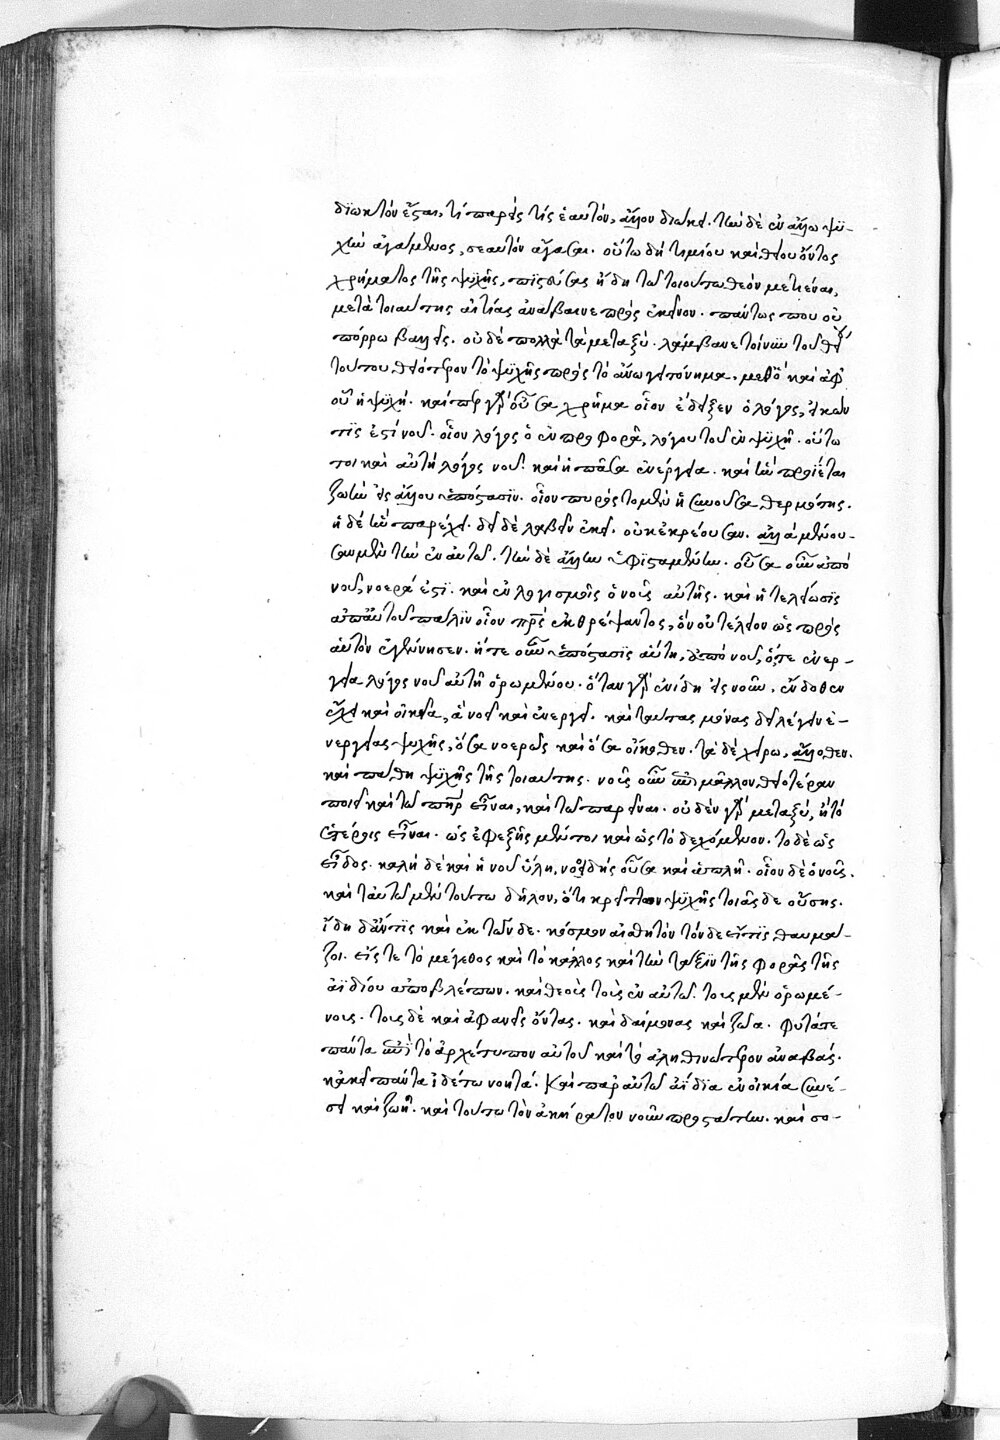 διωκτὸν ἔσται, τί παρείς τις ἑαυτὸν, ἄλλον διώκει. τὴν δὲ ἐν ἄλλω ψυ-
χὴν ἀγάμενος, σεαυτὸν ἄγασαι. οὕτω δὴ τιμίου καὶ θείου ὄντος
χρήματος τῆς ψυχῆς, πιστεύσας ἤδη τῶ τοιούτω θεὸν μετιέναι,
μετὰ τοιαύτης αἰτίας ἀνάβαινε πρὸς ἐκεῖνον. πάντως που οὐ
πόρρω βαλεῖς. οὐδὲ πολλὰ τὰ μεταξύ. λάμβανε τοίνυν τοῦ θείου
τούτου θειότερον τὸ ψυχῆς πρὸς τὸ ἄνω γειτόνημα, μεθ' ὃ καὶ ἀφ'
οὗ ἡ ψυχή. καίπερ γὰρ οὖσα χρῆμα οἷον ἔδειξεν ὁ λόγος, εἰκών
τίς ἐστι νοῦ. οἷον λόγος ὁ ἐν προφορᾶ, λόγου τοῦ ἐν ψυχῆ. οὕτω
τοι καὶ αὐτὴ λόγος νοῦ. καὶ ἡ πᾶσα ἐνέργεια. καὶ ἣν προΐεται
ζωὴν εἰς ἄλλου ὑπόστασιν. οἷον πυρὸς τὸ μὲν ἡ συνοῦσα θερμότης.
ἡ δὲ ἣν παρέχει. δεῖ δὲ λαβεῖν ἐκεῖ. οὐκ ἐκρέουσαν. ἀλλὰ μένου-
σαν μὲν τὴν ἐν αὐτῶ. τὴν δὲ ἄλλην ὑφισταμένην. οὖσα οὖν ἀπὸ
νοῦ, νοερά ἐστι. καὶ ἐν λογισμοῖς ὁ νοῦς αὐτῆς. καὶ ἡ τελείωσις
ἀπ' αὐτοῦ πάλιν οἷον πατρὸς ἐκθρέψαντος, ὃν οὐ τέλειον ὡς πρὸς
αὐτὸν ἐγέννησεν. ἥ τε οὖν ὑπόστασις αὐτῆ, ἀπὸ νοῦ, ὅ τε ἐνερ-
γεία λόγος νοῦ αὐτῆ ὁρωμένου. ὅταν γὰρ ἐνίδη εἰς νοῦν, ἔνδοθεν
ἔχει καὶ οἰκεῖα, ἃ νοεῖ καὶ ἐνεργεῖ. καὶ ταύτας μόνας δεῖ λέγειν ἐ-
νεργείας ψυχῆς, ὅσα νοερῶς καὶ ὅσα οἴκοθεν. τὰ δὲ χείρω, ἄλλοθεν.
καὶ πάθη ψυχῆς τῆς τοιαύτης. νοῦς οὖν ἔτι μᾶλλον θειοτέραν
ποιεῖ καὶ τῶ πατὴρ εἶναι, καὶ τῶ παρεῖναι. οὐδὲν γὰρ μεταξύ, ἢ τὸ
ἑτέροις εἶναι. ὡς ἐφεξῆς μέντοι καὶ ὡς τὸ δεχόμενον. τὸ δὲ ὡς
εἶδος. καλὴ δὲ καὶ ἡ νοῦ ὕλη, νοοειδὴς οὖσα καὶ ἁπλῆ. οἷον δὲ ὁ νοῦς.
καὶ ταὐτῶ μὲν τούτω δῆλον, ὅτι κρεῖττον ψυχῆς τοιᾶσδε οὔσης.
ἴδη δ' ἄν τις καὶ ἐκ τῶνδε. κόσμον αἰσθητὸν τόνδε εἴ τις θαυμά-
ζοι. εἴς τε τὸ μέγεθος καὶ τὸ κάλλος καὶ τὴν τάξιν τῆς φορᾶς τῆς
ἀϊδίου ἀποβλέπων. καὶ θεοὺς τοὺς ἐν αὐτῶ. τοὺς μὲν ὁρωμέ-
νους. τοὺς δὲ καὶ ἀφανεῖς ὄντας. καὶ δαίμονας καὶ ζῶα. φυτά τε
πάντα ἐπὶ τὸ ἀρχέτυπον αὐτοῦ καὶ τὸ ἀληθινώτερον ἀναβάς.
κἀκεῖ πάντα ἰδέτω νοητά. καὶ παρ' αὐτῶ ἀΐδια ἐν οἰκεία συνέ-
σει καὶ ζωῆ. καὶ τούτω τὸν ἀκήρατον νοῦν προστάτην. καὶ σο-